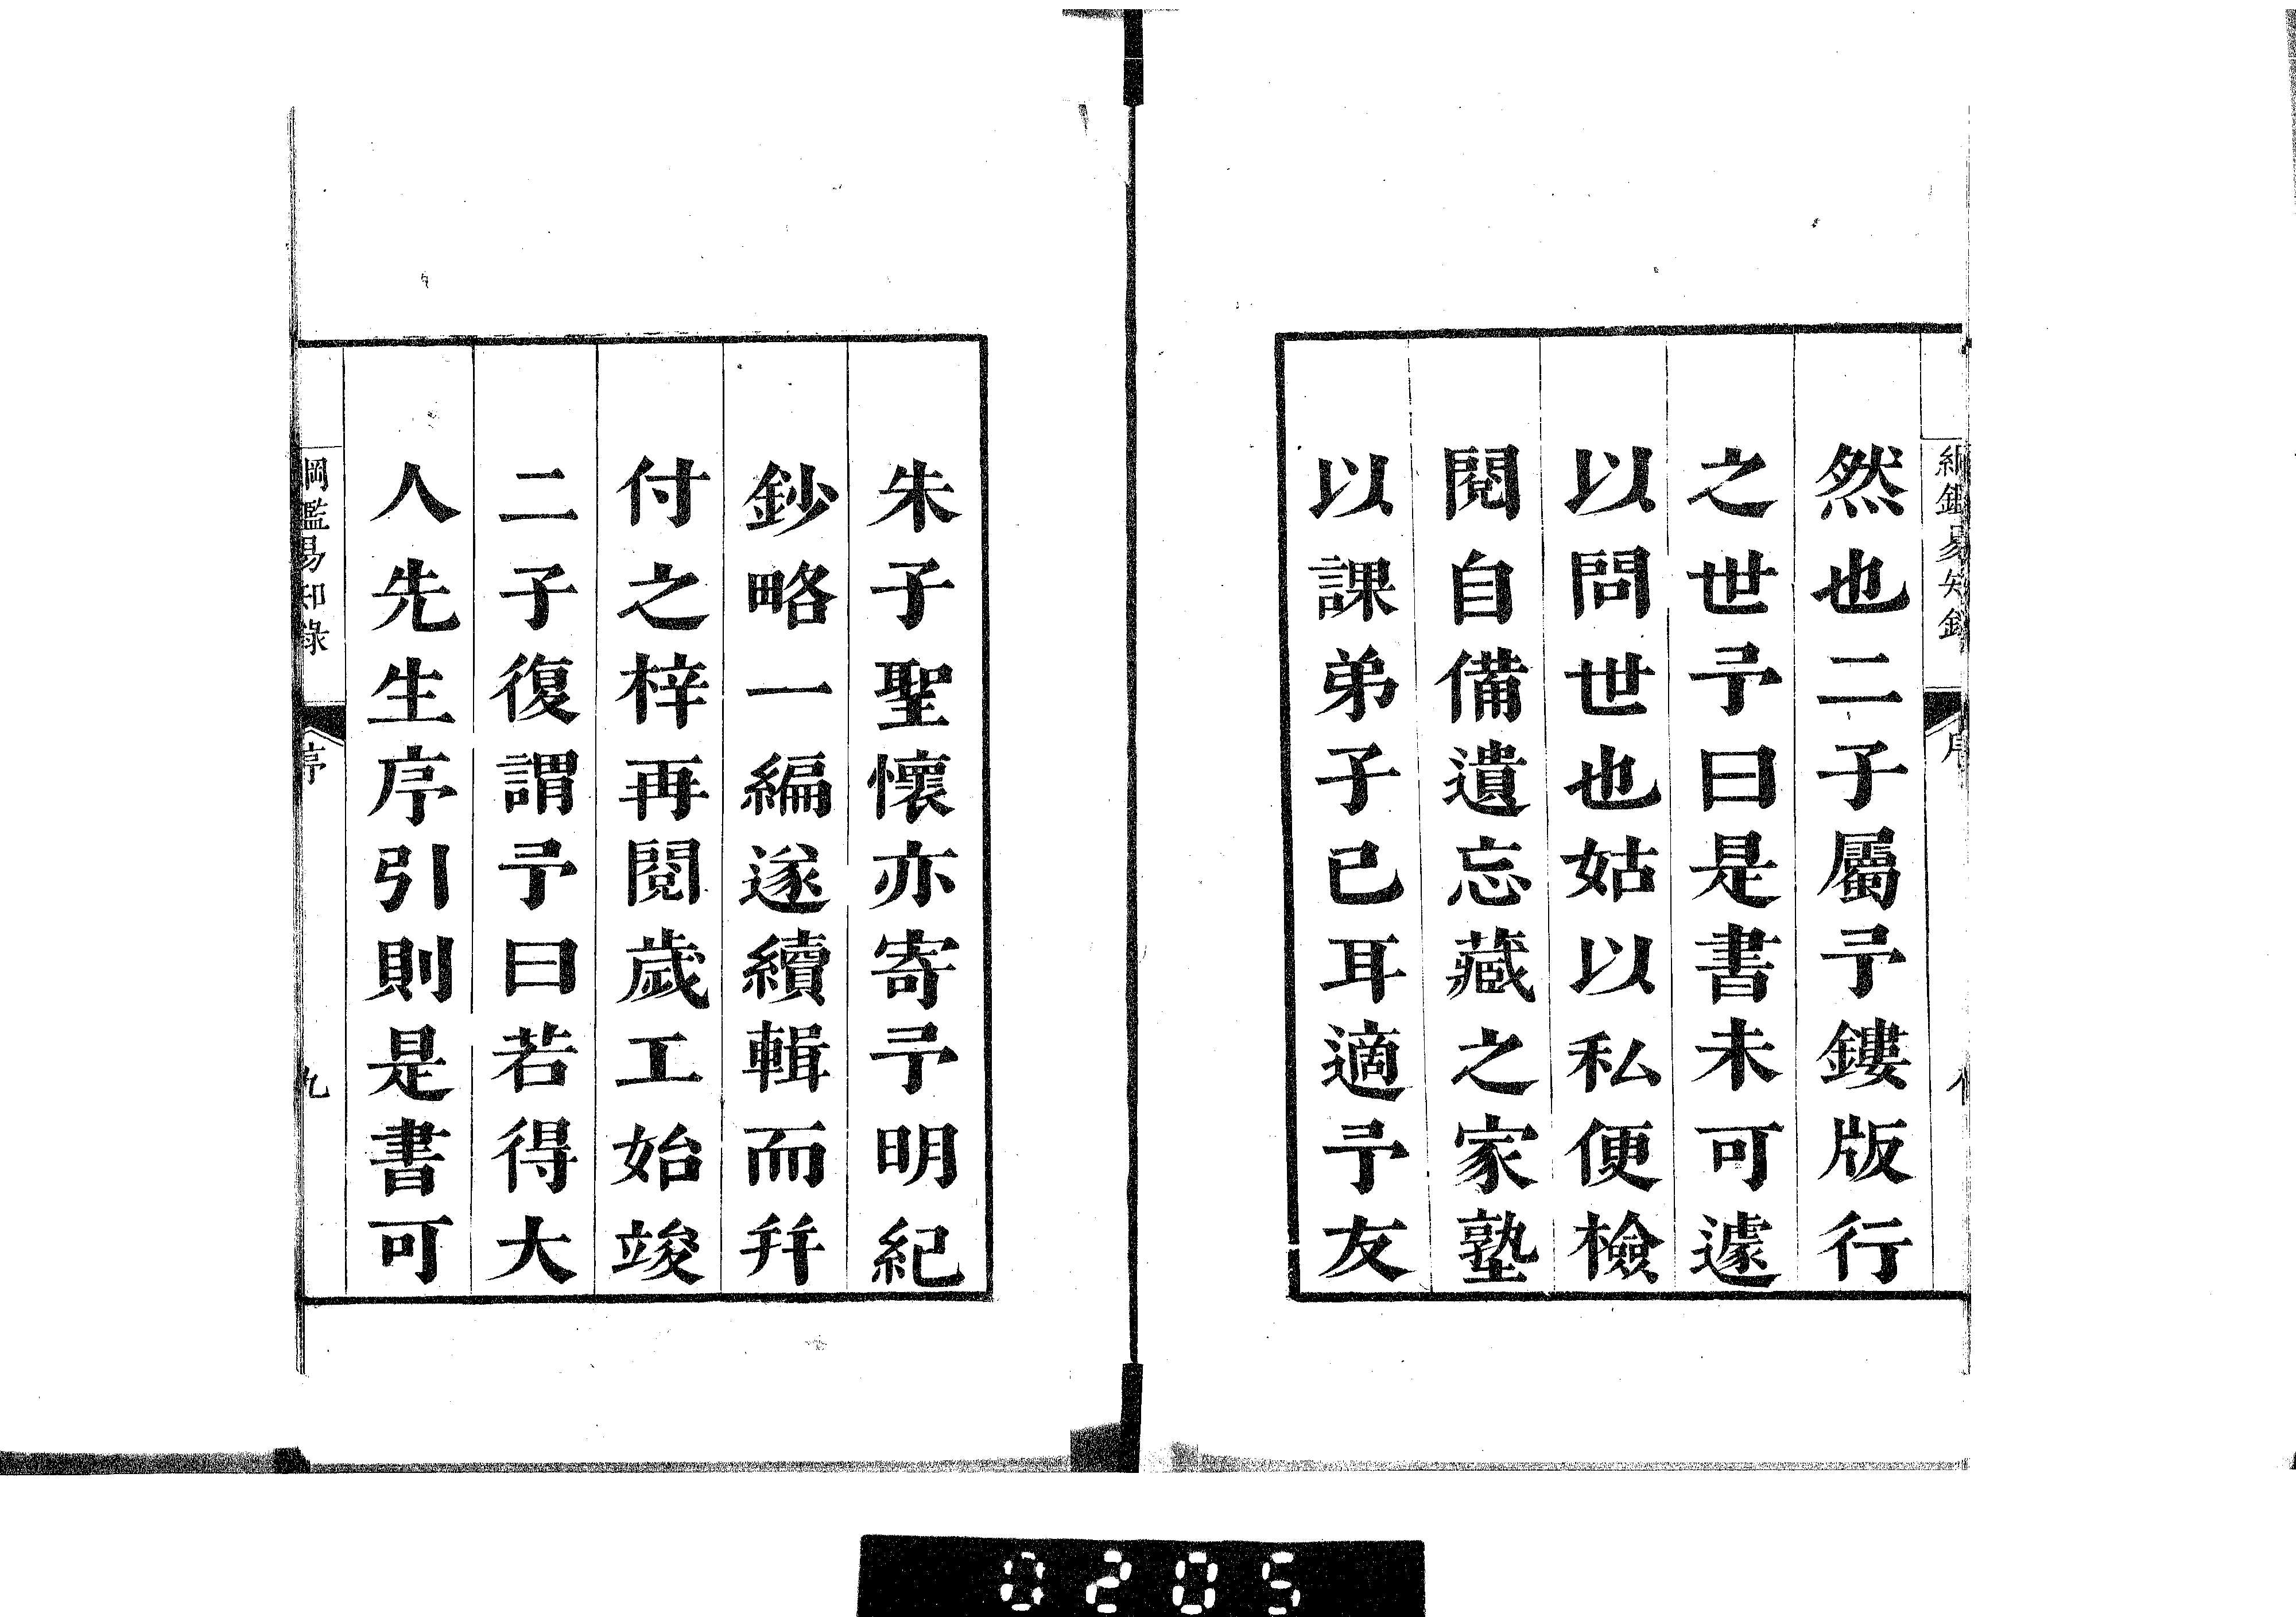 綱鑑易知錄
序
然也二子屬予鏤版行
之世予曰是書未可遽
以問世也姑以私便檢
閱自備遺忘藏之家塾
以課弟子已耳適予友
朱子聖懷亦寄予明紀
鈔略一編遂續輯而幷
付之梓再閱歲工始竣
二子復謂予曰若得大
人先生序引則是書可
綱鑑易知錄
序
九
0205